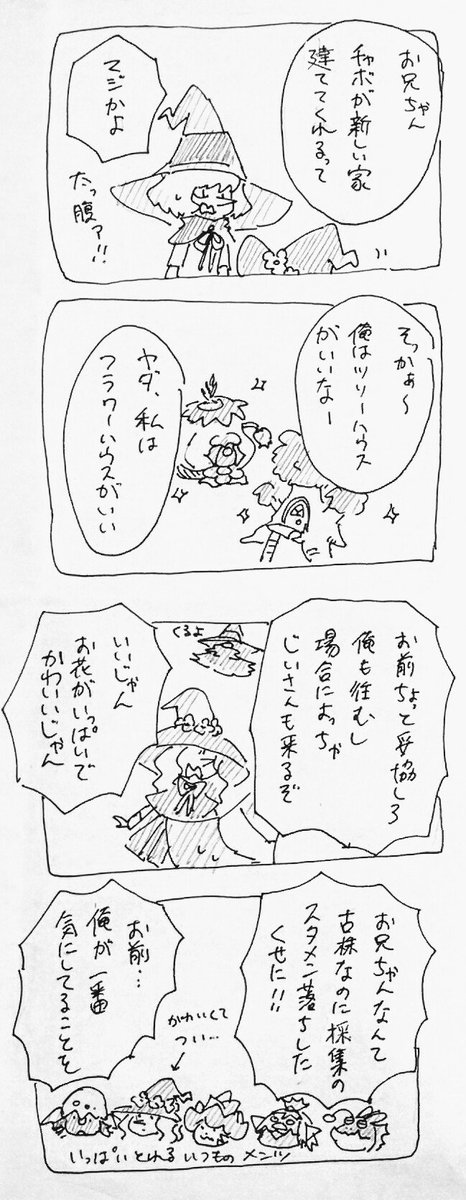 お兄ちゃん
チャボが新しい家
建ててくれるって
マジかよ
たっ腹ァ!!
そっかぁ〜
俺はツリーハウス
がいいなー
ヤダ、私は
フラワーハウスがいい
お前ちょっと妥協しろ
俺も住むし
場合によっちゃ
じいさんも来るぞ
くるよ
いいじゃん
お花がいっぱいで
かわいいじゃん
お兄ちゃんなんて
古株なのに採集の
スタメン落ちした
くせに!!
お前…
俺が一番
気にしてることを
かわいくて
つい…
いっぱいとれるいつものメンツ